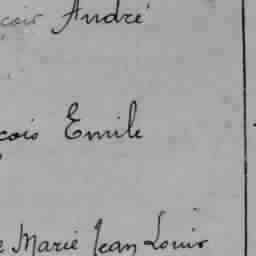 çois André
çois Emile
e Marie Jean Louis